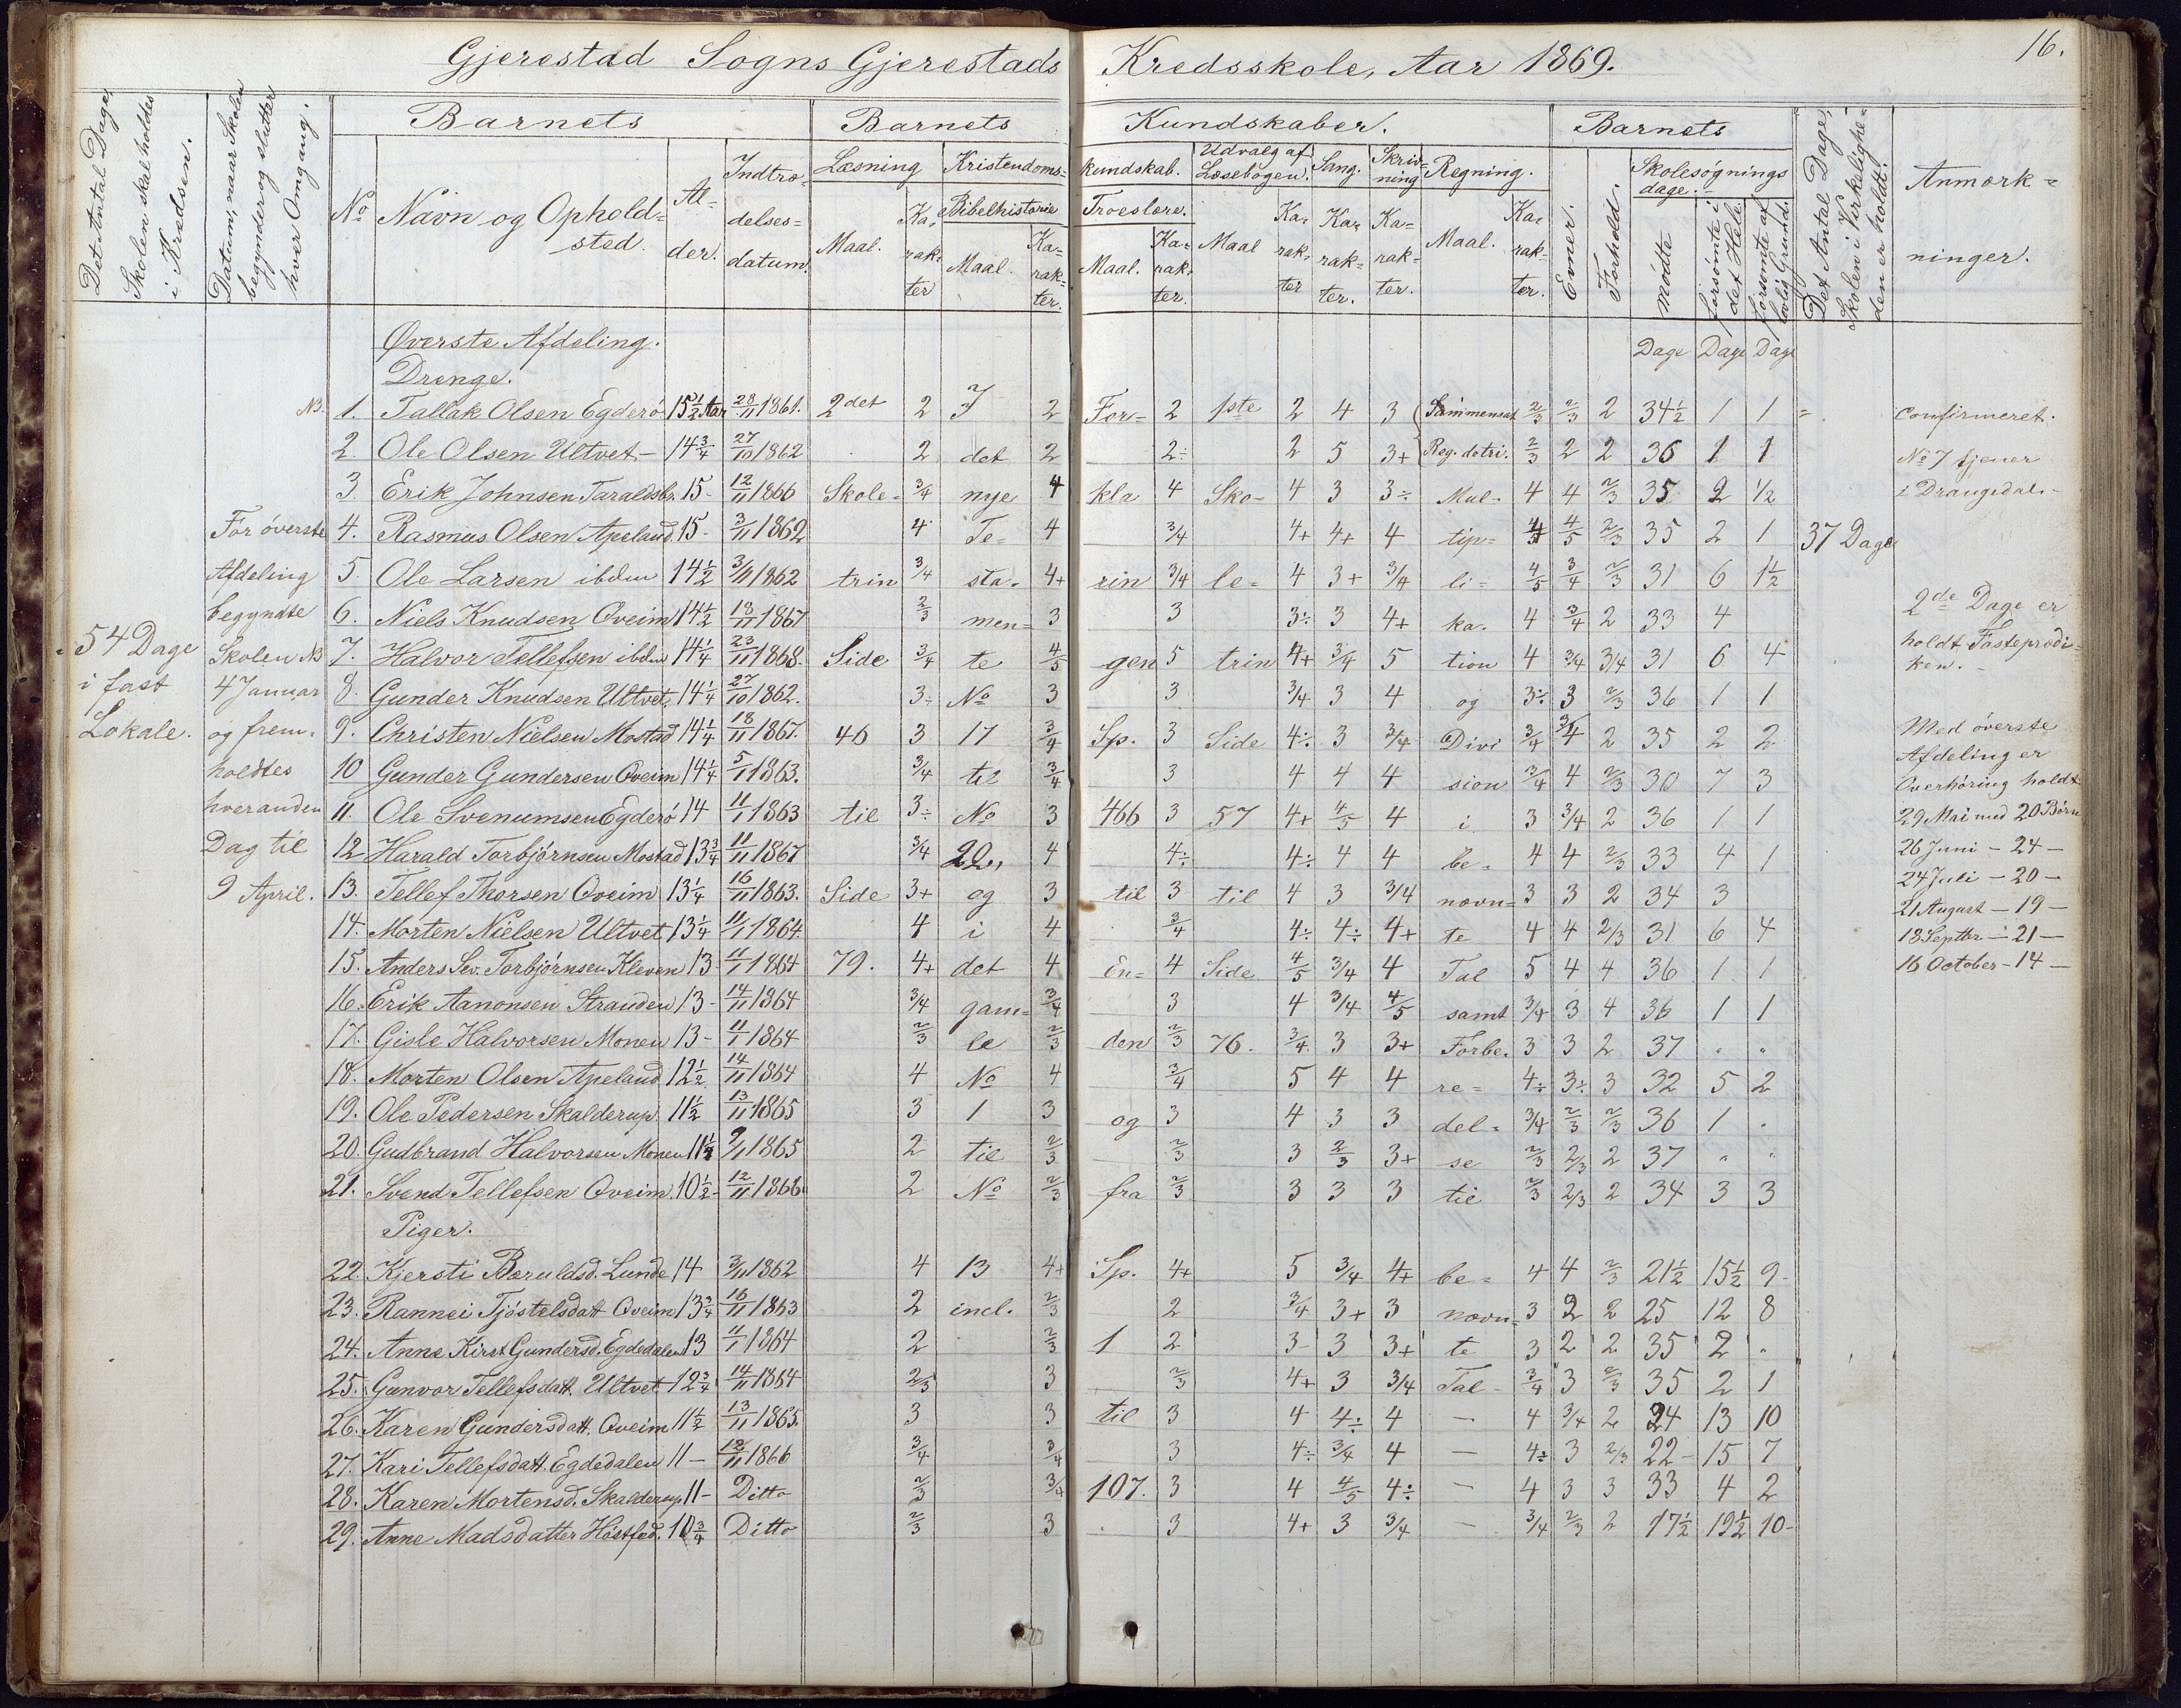 Gjerestad Sogns Gjerestads Kredsskole, Aar 1869.
16.
Det Antal Dage, Skolen skal holdes i Kredsen.
Datum, naar Skolen begynder og slutter hver Omgang.
Barnets
Barnets Kundskaber.
Barnets
Det Antal Dage, Skolen i Virkelighe= den er holdt.
Anmærk= ninger.
No Navn og Ophold= sted.
Al= der.
Indtræ= delses= datum.
Læsning
Maal. Ka= rak= ter
Kristendoms= kundskab.
Bibelhistorie
Maal. Ka= rak= ter.
Troeslære.
Maal. Ka= rak= ter.
Udvalg af Læsebogen.
Maal Ka= rak= ter
Sang.
Ka= rak= ter.
Skriv= ning
Ka= rak= ter.
Regning.
Maal. Ka= rak= ter.
Evner.
Forhold.
Skolesøgnings dage.
mødte
forsømte i det Hele
forsømte af lovlig Grund.
Øverste Afdeling.
Dage Dage Dage
Drenge.
NB. 1. Tallak Olsen Egderö 15½ Aar 28/11 1861. 2det 2 I 2 For= 2 1ste 2 4 3 Sammensat 2/3 2/3 2 34½ 1 1 = confirmeret.
2. Ole Olsen Ultvet- 14¾ 27/10 1862 2 det 2 2÷ 2 5 3+ Reg. detri. 2/3 2 2 36 1 1 No 7 tjener
3. Erik Johnsen Taraldsb. 15- 12/11 1866 Skole= 3/4 nye 4 kla 4 Sko= 4 3 3÷ Mul= 4 4 2/3 35 2 1/2 i Drangedal.-
For överste 4. Rasmus Olsen Apeland 15- 3/11 1862 4 Te= 4 3/4 4+ 4+ 4 tip= 4 4/5 2/3 35 2 1 37 Dage
Afdeling 5. Ole Larsen ibdm 14½ 3/11 1862 trin 3/4 sta= 4+ rin 3/4 le= 4 3+ 3/4 li= 4/5 3/4 2/3 31 6 1½
begyndte 6. Niels Knudsen Oveim 14½ 18/11 1867 2/3 men= 3 3 3÷ 3 4+ ka= 4 3/4 2 33 4 2de Dage er
54 Dage Skolen NB 7. Halvor Tellefsen ibdm 14¼ 23/11 1868. Side 3/4 te 4/5 gen 5 trin 4+ 3/4 5 tion 4 3/4 3/4 31 6 4 holdt Fasteprædi=
i fast 4 Januar 8. Gunder Knudsen Ultvet 14¼ 27/10 1862. 3÷ No 3 3 3/4 3 4 og 3÷ 3 2/3 36 1 1 ken.-
Lokale. og frem= 9. Christen Nielsen Mostad 14¼ 18/11 1867. 46 3 17 3/4 Sp. 3 Side 4÷ 3 3/4 Divi 3/4 3/4 2 35 2 2 Med överste
holdtes 10 Gunder Gundersen Oveim 14¼ 5/1 1863. 3/4 til 3/4 3 4 4 4 sion 3/4 4 2/3 30 7 3 Afdeling er Overhøring holdt
hveranden 11. Ole Svenumsen Egderö 14 11/1 1863 til 3÷ No 3 466 3 57 4+ 4/5 4 i 3 3/4 2 36 1 1 29 Mai med 20 Børn
Dag til 12 Harald Torbjørnsen Mostad 13¾ 11/11 1867 3/4 20, 4 4÷ 4÷ 4 4 be= 4 4 2/3 33 4 1 26 Juni - 24 -
9 April. 13. Tellef Thorsen Oveim 13¼ 16/11 1863. Side 3+ og 3 til 3 til 4 3 3/4 nævn= 3 3 2 34 3 24 Juli - 20 -
14. Morten Nielsen Ultvet 13¼ 11/1 1864. 4 i 4 3/4 4÷ 4÷ 4+ te 4 4 2/3 31 6 4 21 August - 19 -
15. Anders Sev. Torbjørnsen Kleven 13 11/1 1864 79. 4+ det 4 En= 4 Side 4/5 3/4 4 Tal 5 4 4 36 1 1 18 Septbr - 21 -
16. Erik Aanonsen Stranden 13- 14/11 1864 3/4 gam= 3/4 3 4 3/4 4/5 samt 3/4 3 4 36 1 1 16 October - 14 -
17. Gisle Halvorsen Monen 13- 11/1 1864 2/3 le 2/3 den 2/3 76. 3/4 3 3+ Forbe= 3 3 2 37 " "
18. Morten Olsen Apeland 12½ 14/11 1864 4 No 4 3/4 5 4 4 re= 4÷ 3÷ 3 32 5 2
19. Ole Pedersen Skalderup. 11½ 13/11 1865 3 1 3 og 3 4 3 3 del= 3/4 2/3 2/3 36 1 "
20. Gudbrand Halvorsen Monen 11½ 9/1 1865 2 til 2/3 2/3 3 2/3 3+ se 2/3 2/3 2 37 " "
21. Svend Tellefsen Oveim 10½- 12/11 1866 2 No 2/3 fra 2/3 3 3 3 til 2/3 2/3 2 34 3 3
Piger.
22. Kjersti Bæruldsd. Lunde 14 3/11 1862 4 13 4+ Sp. 4+ 5 3/4 4+ be= 4 4 2/3 21½ 15½ 9-
23. Rannei Tjöstelsdatt Oveim 13¾ 16/11 1863 2 incl. 2/3 2 3/4 3+ 3 nævn= 3 2 2 25 12 8
24. Anne Kirst. Gundersd. Egdedalen 13 11/1 1864 2 2/3 1 2 3- 3 3+ te 3 2 2 35 2 "
25. Gunvor Tellefsdatt. Ultvet 12¾ 14/11 1864 2/3 3 2/3 4+ 3 3/4 Tal- 3/4 3 2/3 35 2 1
26. Karen Gundersdatt. Oveim 11½ 13/11 1865. 3 3 til 3 4 4÷ 4 - 4 3/4 2 24 13 10
27. Kari Tellefsdatt. Egdedalen 11- 12/11 1866 3/4 3/4 3 4÷ 3/4 4 - 4÷ 3 2/3 22- 15 7
28. Karen Mortensd. Skalderup 11- Ditto 2/3 3/4 107. 3 4 4/5 4÷ - 4 3 3 33 4 2
29. Anne Madsdatter Höstfed. 10¾ Ditto 2/3 3 3 4+ 3 3/4 - 3/4 2/3 2 17½ 19½ 10-